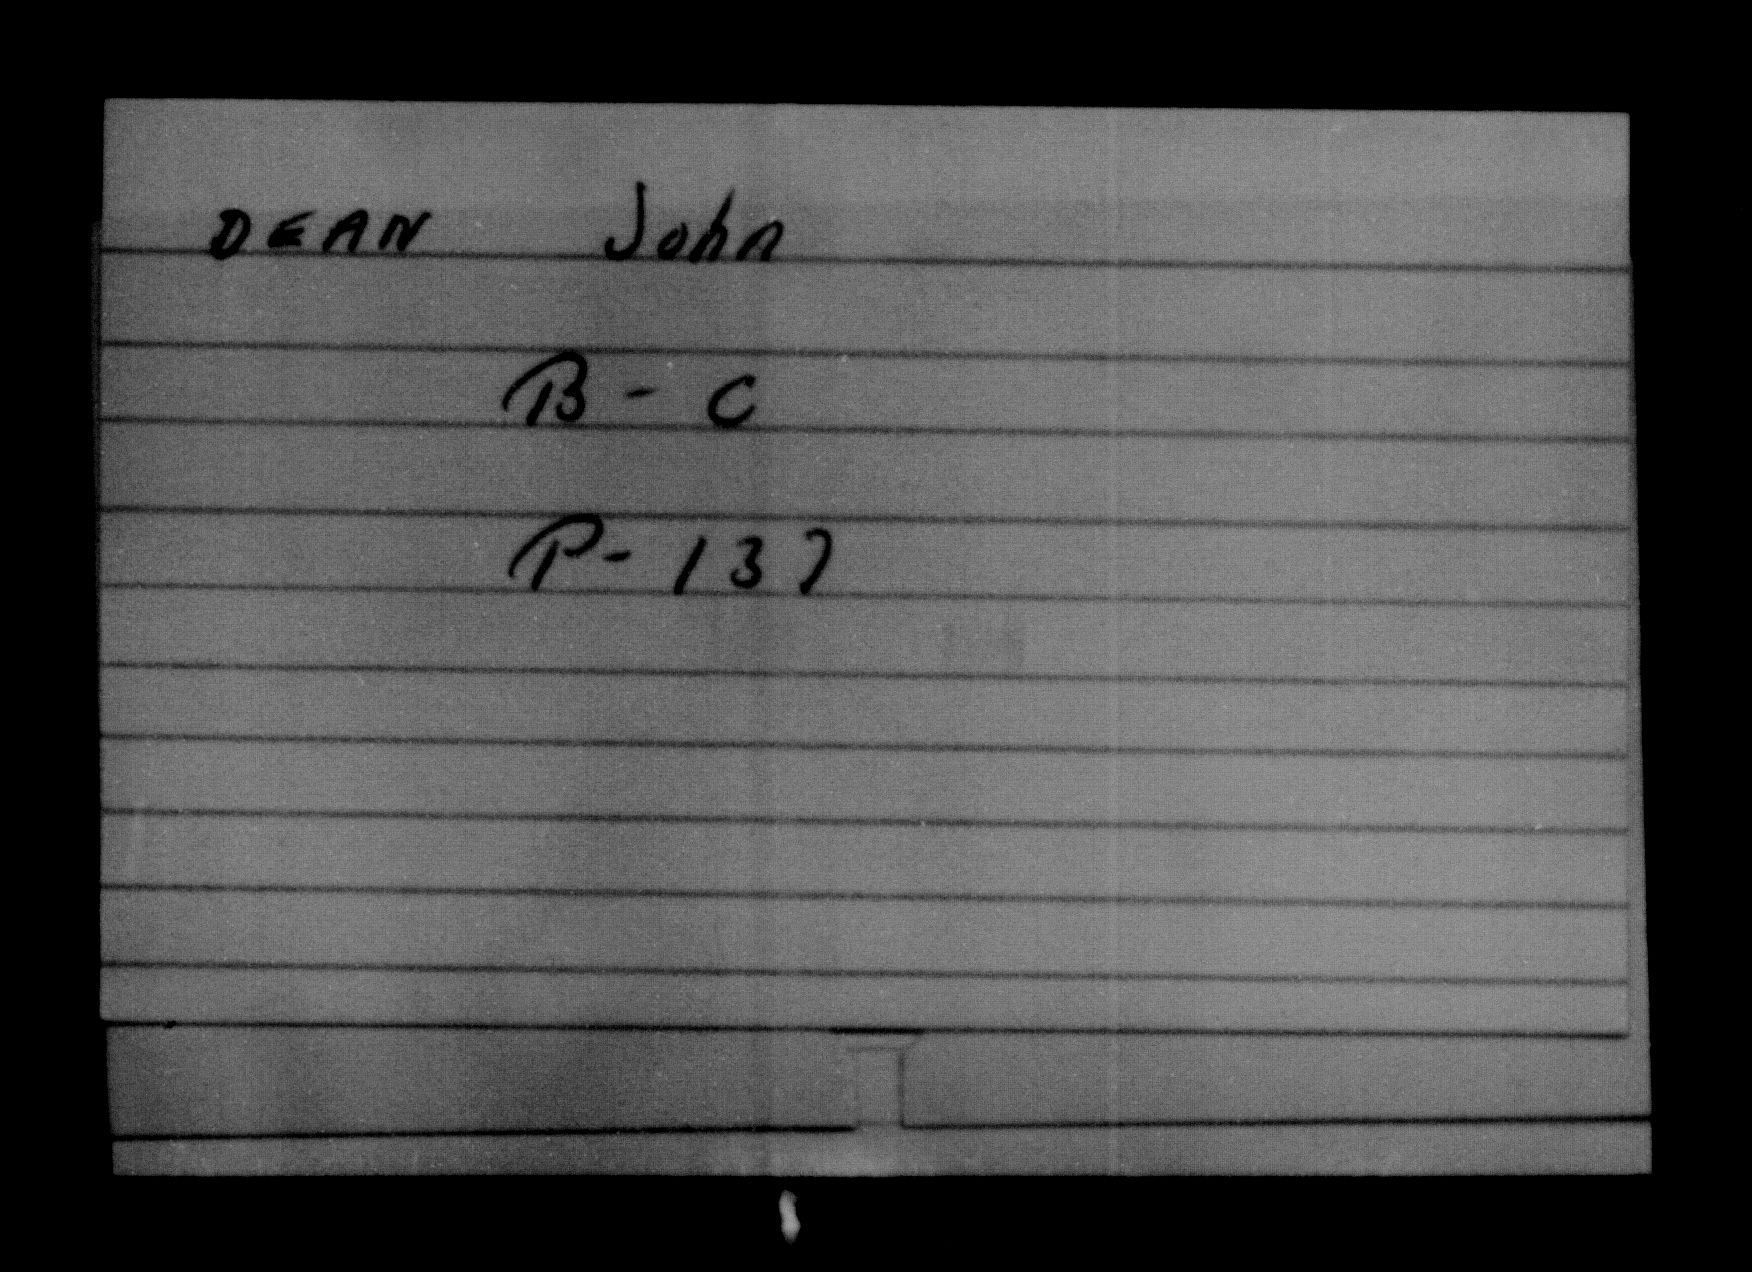 DEAN John
B - C
P - 137